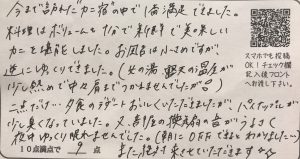 今まで訪れた"カニ宿"の中で1番満足できました。
料理はボリュームも十分で新鮮で美味しい
カニを堪能しました。お風呂は小さめですが、
逆にゆっくりできました。(女の湯 露天の温度が
少し熱めで中々肩までつかれませんでしたが。)
二点だけ… 夕食のデザートおいしくいただきましたが、パイナップルが
少し臭くなっていました。又、部屋の換気扇の音がうるさく
夜中ゆっくり眠れませんでした。(朝にOFFできるとわかりました…)
10点満点で 9 点 また絶対来させていただきます
スマホでも投稿
OK!チェック欄
記入後フロント
へお渡し下さい。